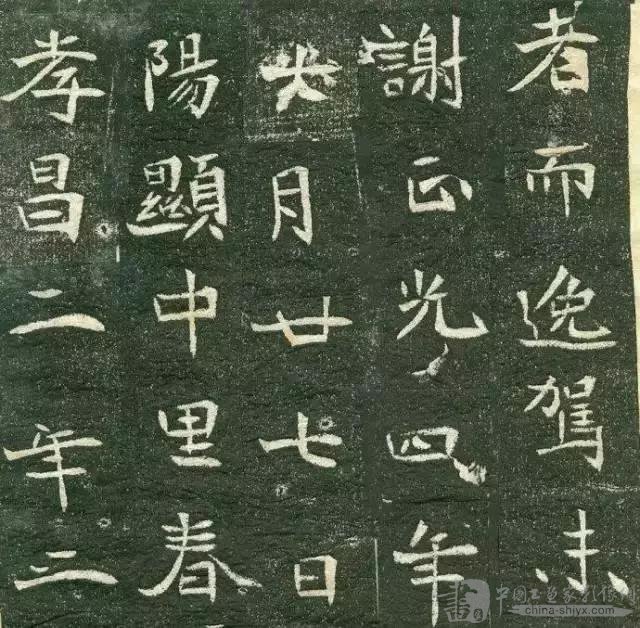 者而逸駕未
謝正光四年
六月廿七日
陽顯中里春
孝昌二年三
china-shiyx.com